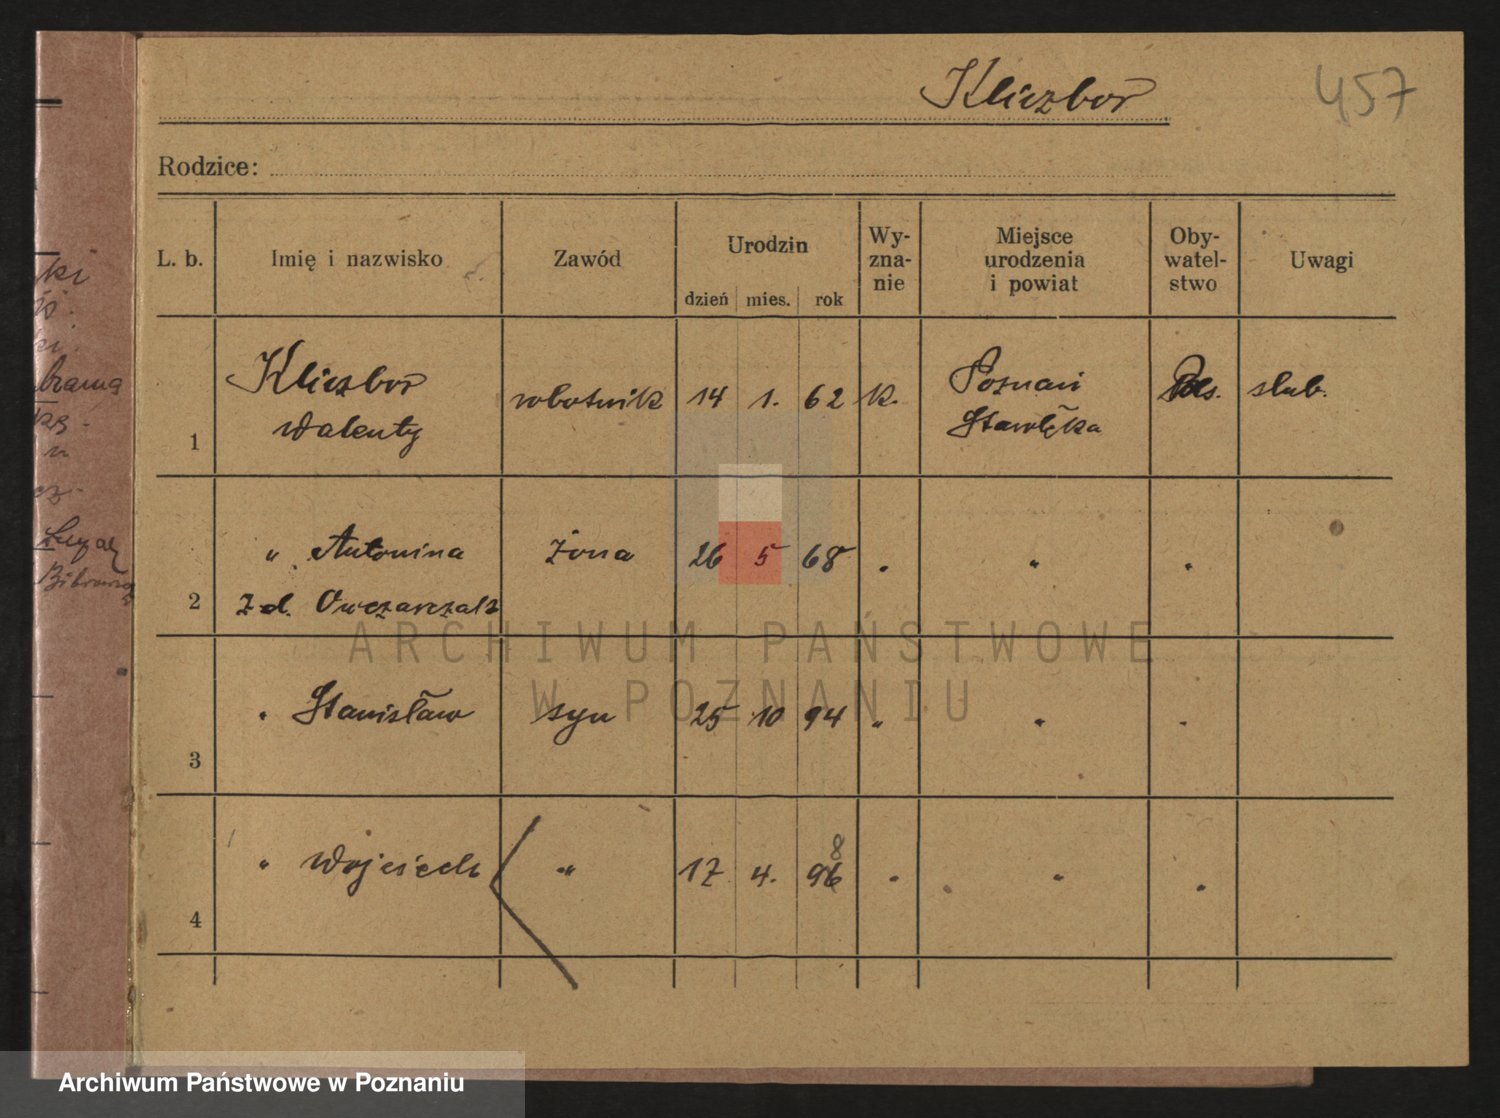 Kliczbor
457
Rodzice:
L. b. Imię i nazwisko Zawód Urodzin dzień mies. rok Wy-zna-nie Miejsce urodzenia i powiat Oby-watel-stwo Uwagi
1 Kliczbor Walenty robotnik 14 1. 62 k. Poznań Starołęka slub.
2 " Antonina żona 26 5 68 . " .
z d. Owczarczak
3 . Stanisław syn 25 10 94 " " .
4 " Wojciech " 17 4. 96 8 . " .
ARCHIWUM PAŃSTWOWE
W POZNANIU
Archiwum Państwowe w Poznaniu